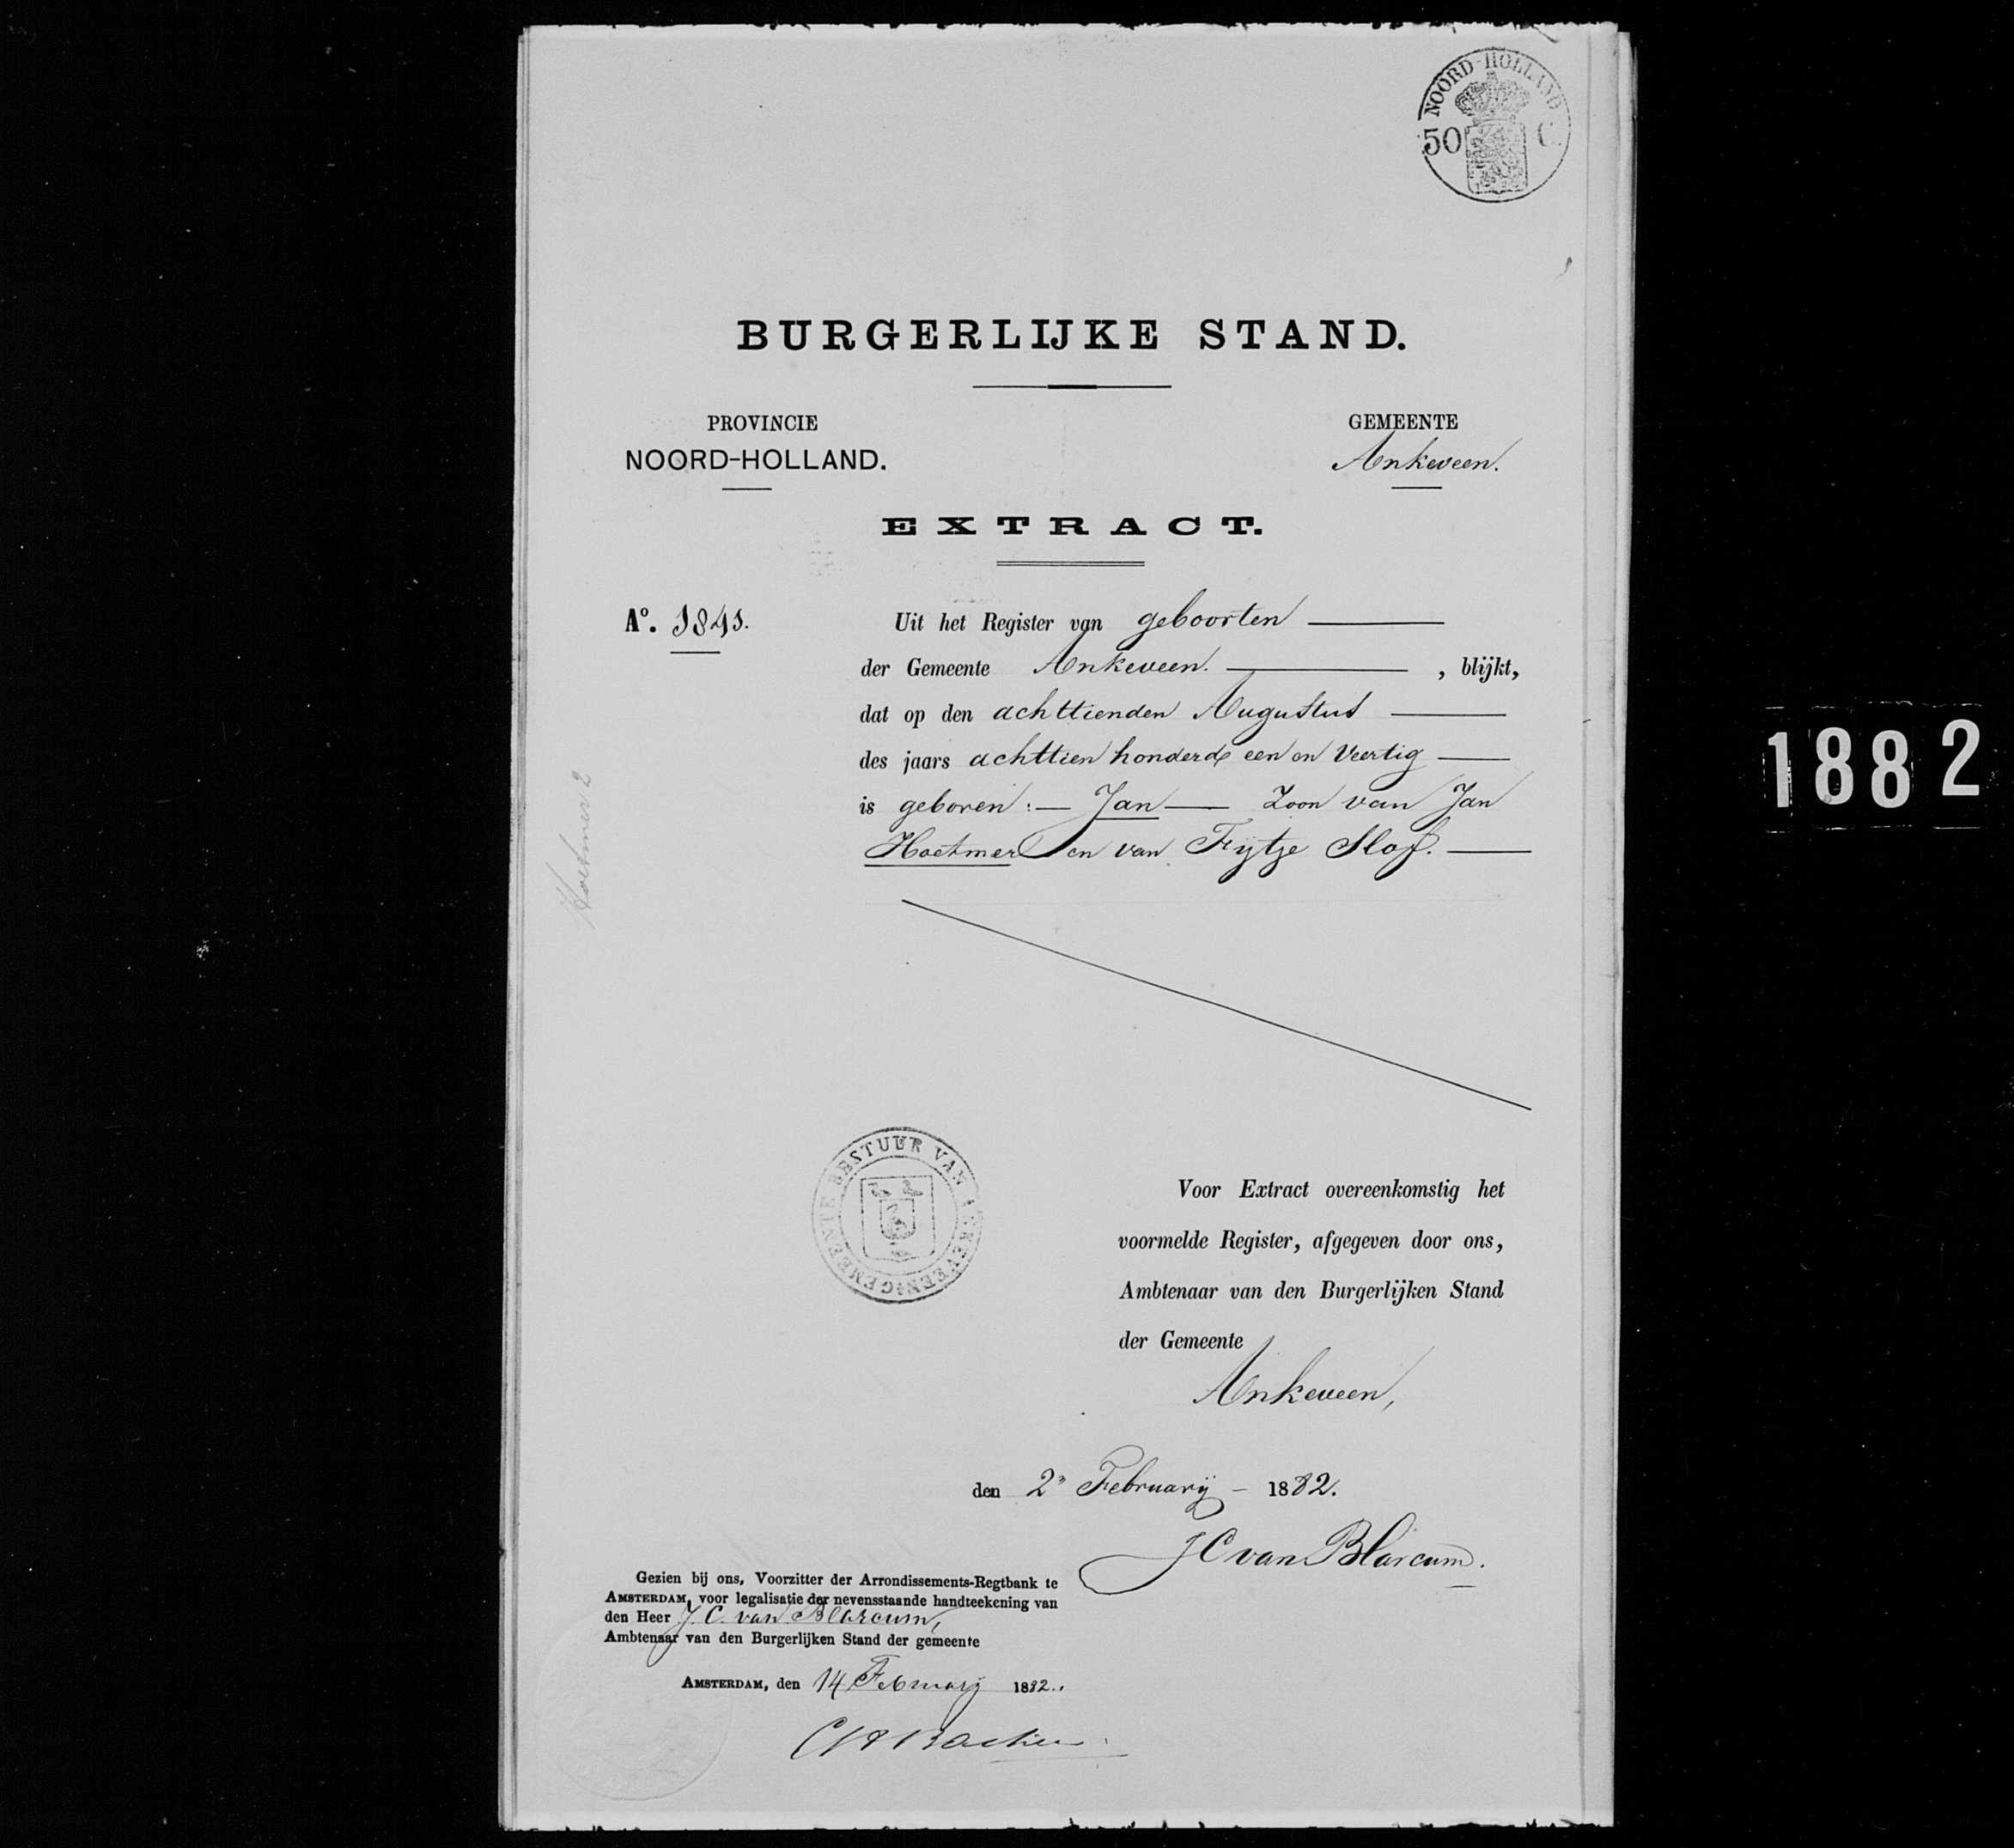 NOORD-HOLLAND
50 C.
BURGERLIJKE STAND.
PROVINCIE
NOORD-HOLLAND.
GEMEENTE
Ankeveen.
EXTRACT.
Aº. 1841.
Uit het Register van geboorten
der Gemeente Ankeveen. , blijkt,
dat op den achttienden Augustus
des jaars achttien honderd een en Veertig
is geboren: — Jan — Zoon van Jan
Hoetmer en van Fijtje Slof.
Hoetmer 2
1882
GEMEENTE BESTUUR VAN ANKEVEEN
Voor Extract overeenkomstig het
voormelde Register, afgegeven door ons,
Ambtenaar van den Burgerlijken Stand
der Gemeente
Ankeveen,
den 2n February – 1882.
J C van Blarcum.
Gezien bij ons, Voorzitter der Arrondissements-Regtbank te
AMSTERDAM, voor legalisatie der nevensstaande handteekening van
den Heer J. C. van Blarcum,
Ambtenaar van den Burgerlijken Stand der gemeente
AMSTERDAM, den 14 February 1882.